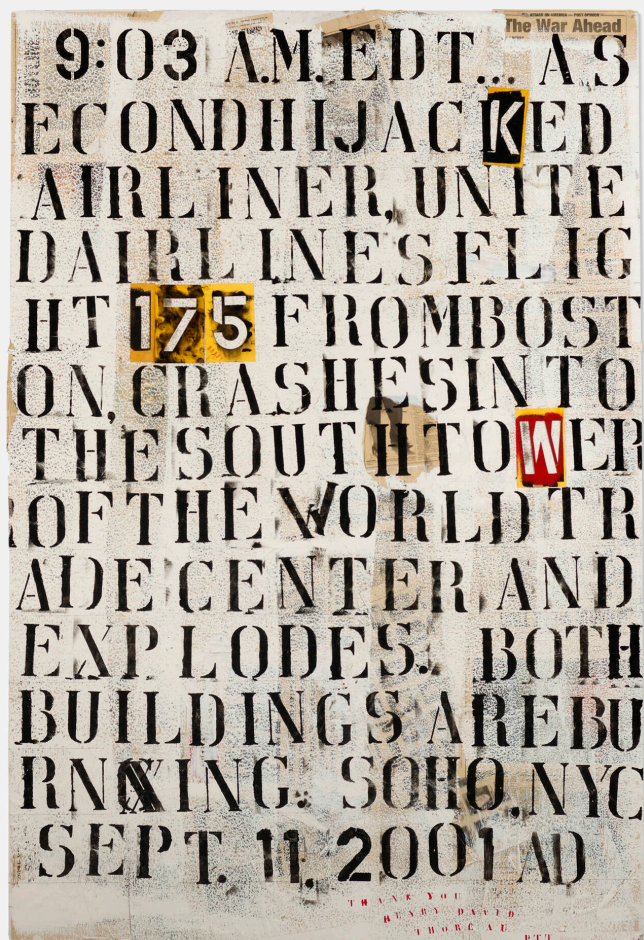 The War Ahead
9:03 A.M. EDT... A S
ECOND HIJACKED
AIRLINER, UNITE
D AIRLINES FLIG
HT 175 FROM BOST
ON, CRASHES INTO
THE SOUTH TOWER
OF THE WORLD TR
ADE CENTER AND
EXPLODES. BOTH
BUILDINGS ARE BU
RNING. SOHO, NYC
SEPT. 11, 2001 AD
THANK YOU
HENRY DAVID
THOREAU